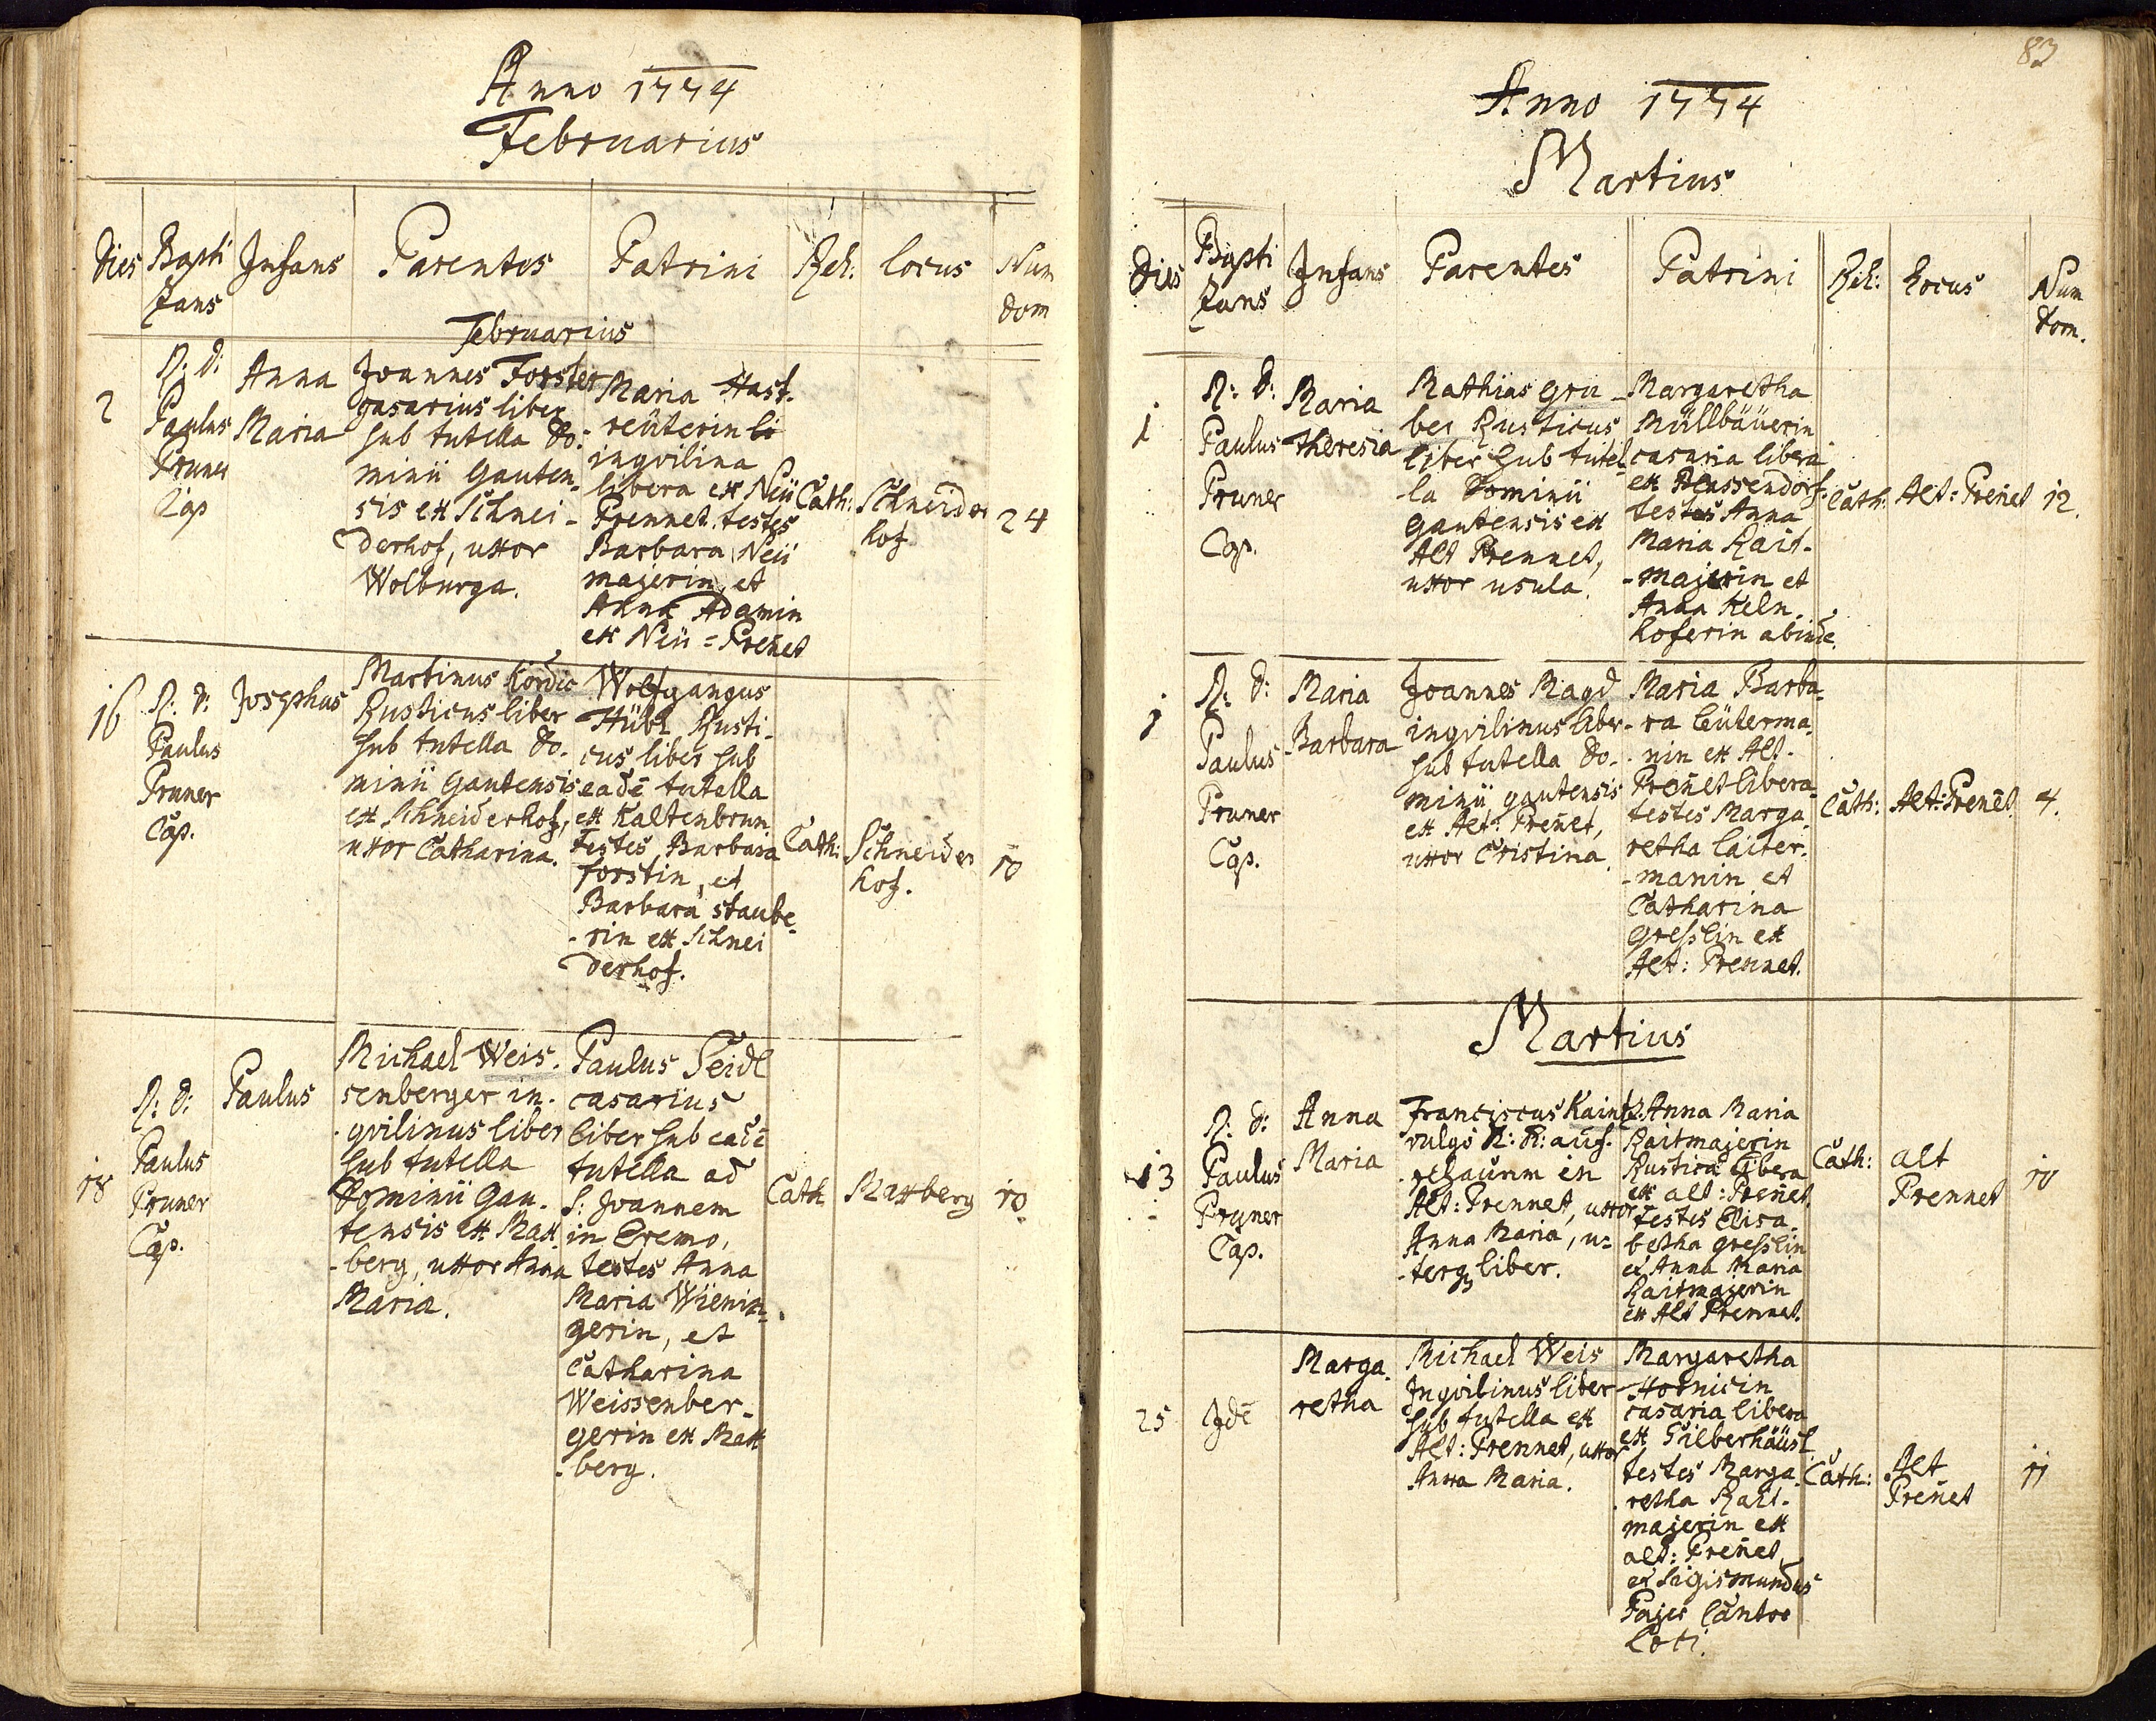 Anno 1774
Februarius
Dies
Bapti
zans
Infans
Parentes
Patrini
Rel:
Locus
Num
dom
Februarius
2
R: d:
Paulus
Pruner
Cap
Anna
Maria
Joannes Forster
casarius liber
sub tutella Do-
minii Gauten-
sis ex Schnei-
derhof, uxor
Wolburga.
Maria Hast-
reüterin
inqvilina
libera ex Neü
Prennet, testes
Barbara Neü
majerin, et
Anna Adamin
ex Neü=Preñet
Cath:
Schneider
hof
24
16
R: d:
Paulus
Pruner
Cap.
Josephus
Martinus Kordic
Rusticus liber
sub tutella Do-
minii Gautensis
ex Schneiderhof,
uxor Catharina.
Wolfgangus
Hübl Rusti-
cus liber sub
eadē tutella
ex Kaltenbrun
testes Barbara
forstin, et
Barbara staube-
-rin ex Schnei
derhof.
Cath:
Schneider
hof.
10
18
R: d:
Paulus
Pruner
Cap.
Paulus
Michael Weis-
senberger in-
-qvilinus liber
sub tutella
Dominii Gau-
tensis ex Max
-berg, uxor Anna
Maria.
Paulus Seidl
casarius
liber sub eadē
tutella ad
S: Joannem
in Eremo,
testes Anna
Maria Wienin-
gerin, et
Catharina
Weissenber-
gerin ex Max
-berg.
Cath
Maxberg
10
83
Anno 1774
Martius
Dies
Bapti
zans
Infans
Parentes
Patrini
Rel:
Locus
Num
dom.
1
R: d:
Paulus
Pruner
Cap.
Maria
Theresia
Mathias Gru-
ber Rusticus
liber sub tutel-
-la Dominii
Gautensis ex
Alt Prennet,
uxor usula.
Margaretha
Müllbäuerin
casaria libera
ex Plassendorf.
testes Anna
Maria Rait-
-majerin et
Anna Keln-
hoferin abinde.
Cath:
Alt=Preñet
12.
1
R: d:
Paulus
Pruner
Cap.
Maria
Barbara
Joannes Magd
inqvilinus liber
sub tutella Do-
minii gautensis
ex Alt: Preñet,
uxor Cristina
Maria Barba-
-ra Leüterma-
-nin ex Alt-
Preñet libera
testes Marga-
retha Laiter-
-manin et
Catharina
Gresslin ex
Alt: Prennet.
Cath:
Alt:Preñet
4.
Martius
13
R: d:
Paulus
Pruner
Cap.
Anna
Maria
Franciscus Kaintz
vulgo
in
Alt: Prennet, uxor
Anna Maria, u=
-terq liber.
Anna Maria
Raitmajerin
Rustica libera
ex alt: Preñet.
testes Elisa-
betha Gresslin
et Anna Maria
Raitmajerin
ex Alt Prennet.
Cath:
alt
Prennet
10
25
Idē
Marga-
retha
Michael Weis
Inqvilinus liber
sub tutella ex
Alt: Prennet, uxor
Anna Maria.
Margaretha
Hornicin
casaria libera
ex Silberhäusl
testes Marga-
retha Rait-
majerin ex
alt: Preñet
et Sigismundus
Pajer Cantor
Loci.
Cath:
Alt
Preñet
11